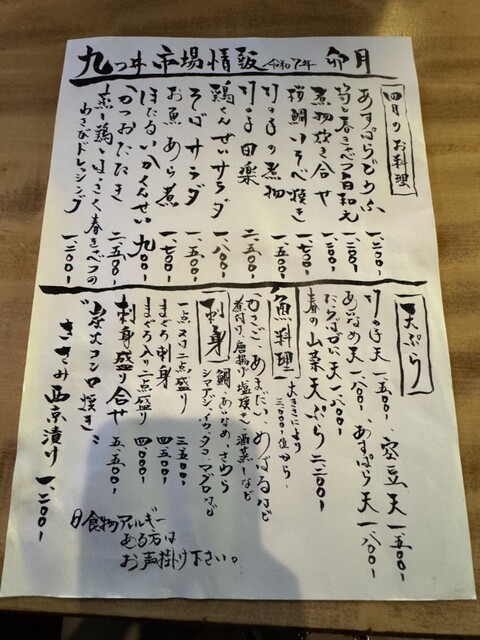 九つ井 市場情報 令和7年 卯月
四月のお料理
あすぱらどうふ 一、二〇〇-
筍と春きゃべつ白和え 一、三〇〇-
煮物炊き合せ 一、二〇〇-
桜鯛いそべ焼き 一、七〇〇-
竹の子の煮物 一、五〇〇-
竹の子田楽 二、五〇〇-
鶏くんせいサラダ 一、八〇〇-
そばサラダ 一、五〇〇-
お魚あら煮 一、七〇〇-
ほたるいかくんせい 九〇〇-
かつおたたき 二、五〇〇-
蒸し鶏とはっさく春きゃべつの
わさびドレッシング 一、三〇〇-
天ぷら
竹の子天 一、五〇〇- 空豆天 一、五〇〇-
あいなめ天 一、八〇〇- あすぱら天 一、八〇〇-
たらばがに天 一、八〇〇-
春の山菜天ぷら 二、二〇〇-
魚料理
大きさにより
三、〇〇〇位から
かさご、あまだい、めばるなど
煮付け、唐揚げ、塩焼き、酒蒸しなど
刺身
鯛、あいなめ、さわら
シマアジ、イカ、タコ、マグロなど
一点又は二点盛り 三、五〇〇-
まぐろ刺身 四、五〇〇-
まぐろ入り二点盛り 四、〇〇〇-
刺身盛り合せ 五、五〇〇-
炭火コンロ焼き
ささみ西京漬け 一、二〇〇-
食物アレルギー
ある方は
お声掛け下さい。